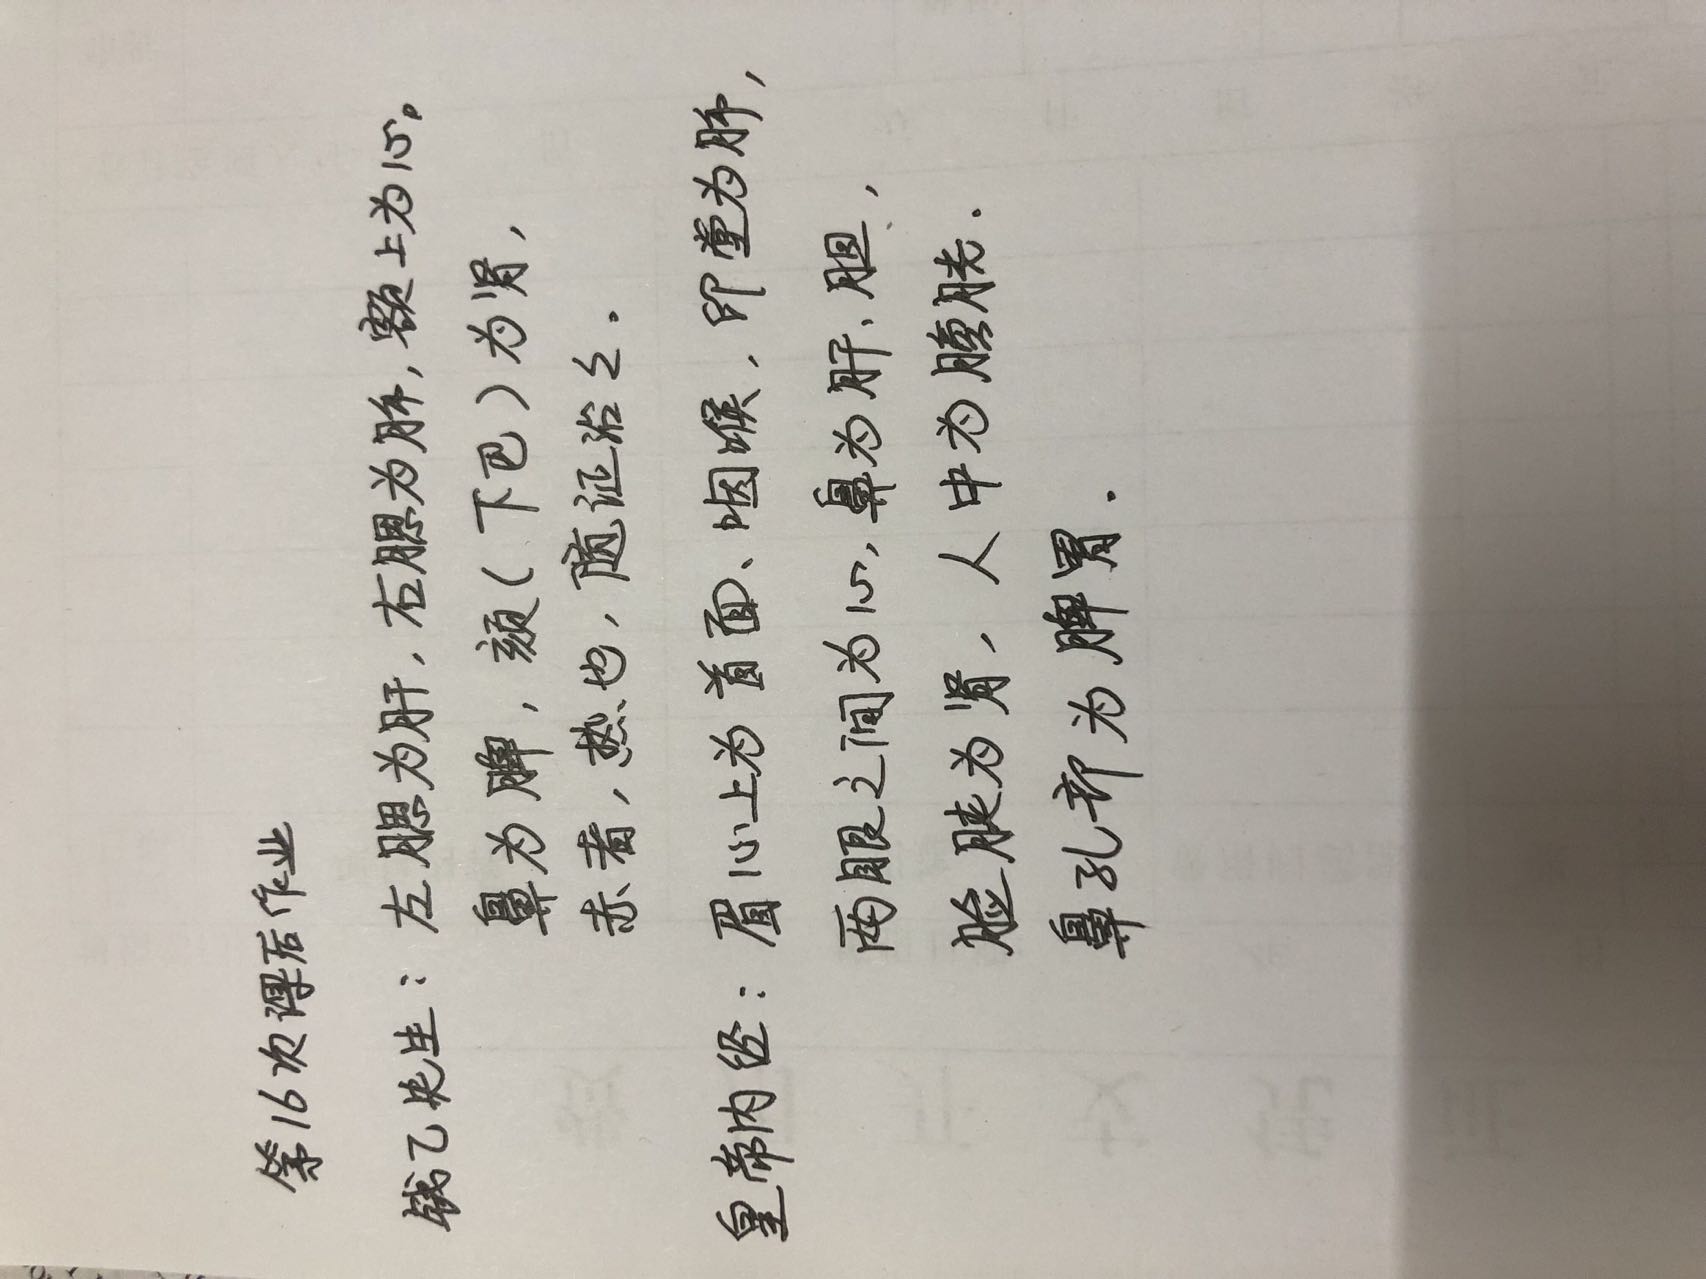 第16次课后作业
钱乙先生：左腮为肝，右腮为肺，额上为心。
鼻为脾，颏（下巴）为肾，
赤者，热也，随证治之．
皇帝内经：眉心上为首面、咽喉，印堂为肺，
两眼之间为心，鼻为肝、胆，
脸胦为肾，人中为膀胱．
鼻孔部为脾胃．